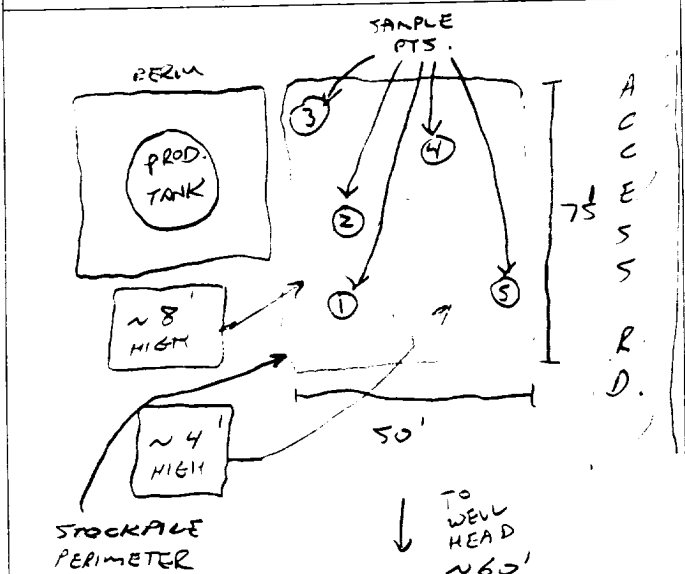 SAMPLE
PTS.
BERM
PROD.
TANK
3
4
2
1
5
75'
ACCESS RD.
~ 8'
HIGH
50'
~ 4'
HIGH
STOCKPILE
PERIMETER
TO
WELL
HEAD
~60'